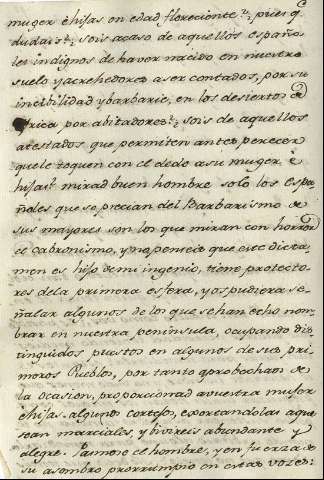 muger è hijas en edad floreciente?, pues q.
dudais?, sois acaso de aquellos españo
les indignos de haver nacido en nuestro
suelo y acrehedores a ser contados, por su
incibilidad y barbarie, en los desiertos de
Africa por abitadores?, sois de aquellos
atestados que permiten antes perecer
que le toquen con el dedo a su muger, è
hijas? mirad buen hombre solo los Espa
ñoles que se precian del Barbarismo de
sus mayores son los que miran con horror
el cabronismo, y no penseis que este dicta
men es hijo de mi ingenio, tiene protecto
res de la primera esfera, y os pudiera se
ñalar algunos de los que se han echo nom
brar en nuestra peninsula, ocupando dis
tinguidos puestos en algunos de sus pri
meros Pueblos, por tanto aprobechaos de
la ocasion, proporcionad a vuestra muger
è hijas algunos cortejos, exortandolas a que
sean marciales, y bivireis abundante y
alegre. Pasmose el hombre, y en fuerza de
su asombro prorrumpio en estas vozes: